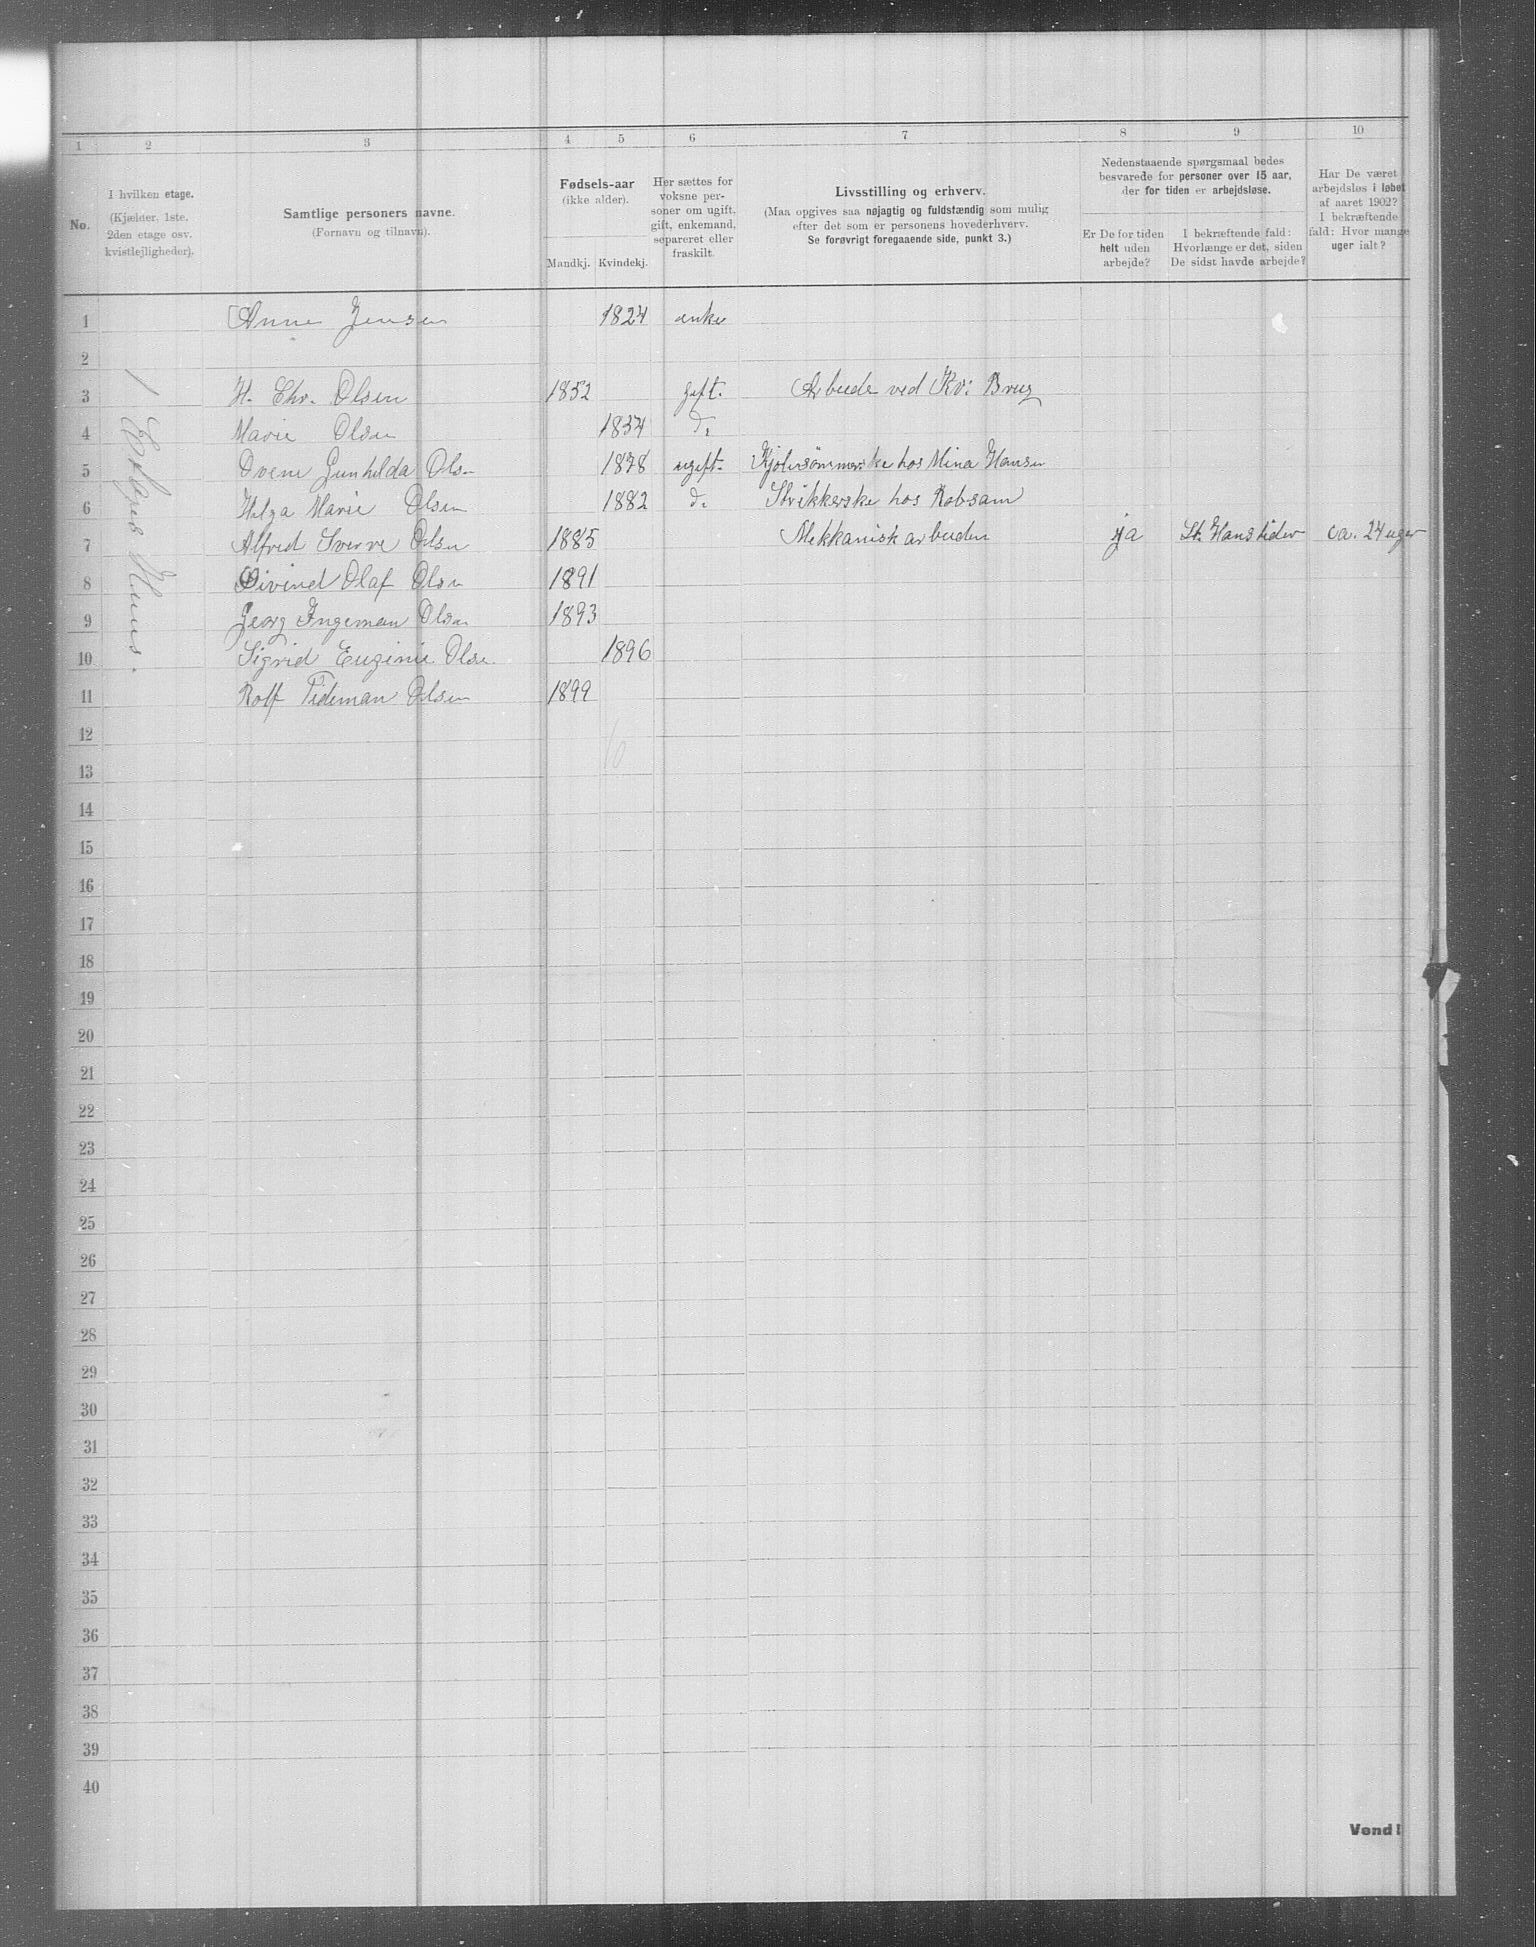 1 2 3 4 5 6 7 8 9 10
No.
I hvilken etage.
(Kjælder, 1ste.
2den etage osv.
kvistlejligheder).
Samtlige personers navne.
(Fornavn og tilnavn).
Fødsels-aar
(ikke alder).
Mandkj. Kvindekj.
Her sættes for
voksne per-
soner om ugift,
gift, enkemand,
separeret eller
fraskilt.
Livsstilling og erhverv.
(Maa opgives saa nøjagtig og fuldstændig som mulig
efter det som er personens hovederhverv.
Se forøvrigt foregaaende side, punkt 3.)
Nedenstaaende spørgsmaal bedes
besvarede for personer over 15 aar,
der for tiden er arbejdsløse.
Er De for tiden
helt uden
arbejde?
I bekræftende fald:
Hvorlænge er det, siden
De sidst havde arbejde?
Har De været
arbejdsløs i løbet
af aaret 1902?
I bekræftende
fald: Hvor mange
uger ialt?
1 Etages Huus.
1 Anne Jensen 1824 enke
2
3 H. Chr. Olsen 1852 gift. Arbeide ved Kv: Brug
4 Marie Olsen 1854 do
5 Gunhilda Olsen 1878 ugift. Kjolesömmerske hos Mina Hansen
6 Helga Marie Olsen 1882 do Strikkerske hos Robsam
7 Alfred Sverre Olsen 1885 Mekkanisk arbeider ja St. Hans tider ca. 24 uger
8 Øivind Olaf Olsen 1891
9 Georg Ingeman Olsen 1893
10 Sigrid Euginie Olsen 1896
11 Rolf Tideman Olsen 1899
12
10
13
14
15
16
17
18
19
20
21
22
23
24
25
26
27
28
29
30
31
32
33
34
35
36
37
38
39
40
Vend!